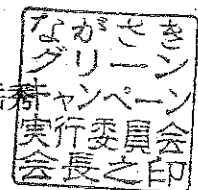 ながさき
グリーン
キャンペーン
実行委員会
会長之印